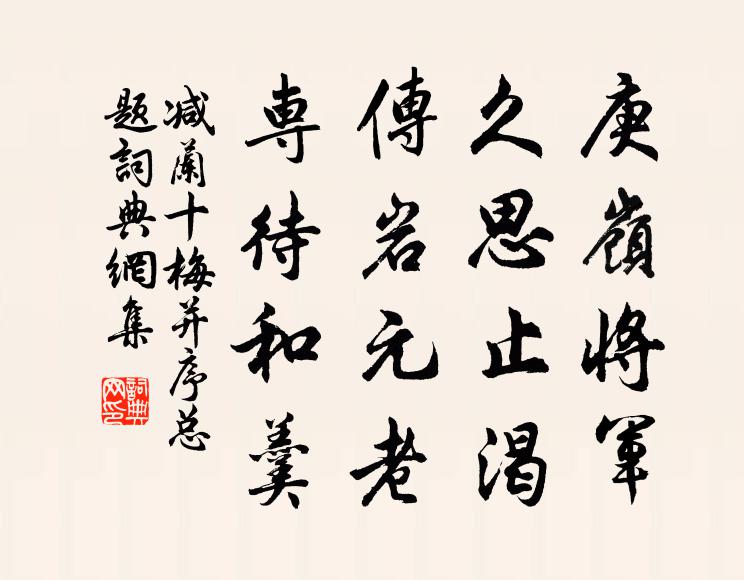 庾嶺將軍
久思止渴
傳岩元老
専待和羹
减蘭十梅并序总
题詞典網集
詞典
网印